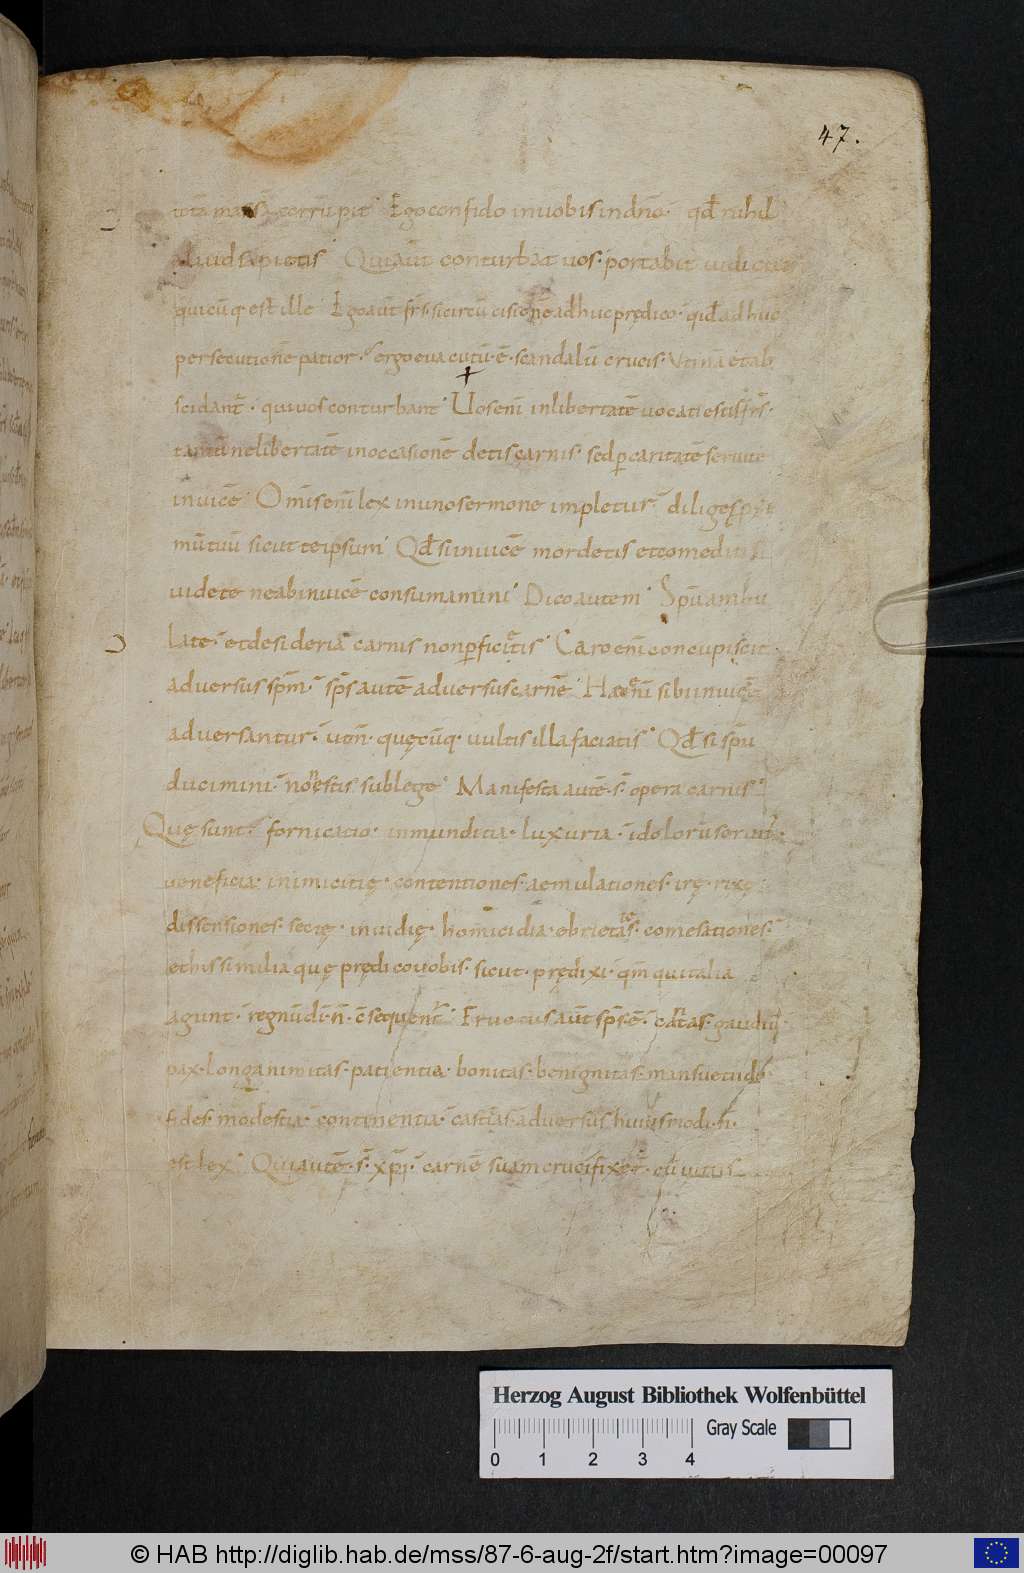 47.
totā massā corrūpit Ego confido in uobis in dn̄o· qđ nihil
aliud sapietis Qui aūt conturbat uos· portabit iudiciū
quicūq· est ille Ego aūt frs̄· si circūcisionē adhuc prędico· qid adhuc
persecutionē patior· ergo euacutū· ē· scandalū crucis· Vtinā et ab
scidant̄· qui uos conturbant Uos enī in libertatē uocati estis frs̄·
tantū ne libertatē in occasionē detis carnis· sed ꝑ caritatē seruite
inuicē Omīs enī lex in uno sermone impletur· diliges p̄xi
mū tuū sicut te ipsum Qđ si inuicē mordetis et comeditis
uidete ne ab inuicē consumamini Dico autem Spū ambu
late· et desideria carnis non ꝑficietis Caro enī concupiscit
aduersus spm̄· sps̄ autē aduersus carnē Haec enī sibi inuicē
aduersantur· ut n̄· quęcūq· uultis illa faciatis Qđ si spū
ducimini· non estis sub lege Manifesta autē· s̄· opera carnis
Quę sunt· fornicatio· inmunditia· luxuria· idolorū seruit·
ueneficia· inimicitię· contentiones· aemulationes· irę· rixę
dissensiones· sectę· inuidię· homicidia· ebrietates· comesationes·
et his similia quę prędico uobis· sicut· prędixi· qm̄ qui talia
agunt· regnū dī· n̄· c̄sequent̄ Fructus aūt sps̄· ē· caritas· gaudiū·
pax· longanimitas· patientia· bonitas· benignitas· mansuetudo·
fides· modestia· continentia· castitas· aduersus huiusmodi· n̄·
est lex Qui autē· s̄· xp̄i· carnē suam crucifixer̄· cū uitiis
Herzog August Bibliothek Wolfenbüttel
Gray Scale
0 1 2 3 4
© HAB http://diglib.hab.de/mss/87-6-aug-2f/start.htm?image=00097